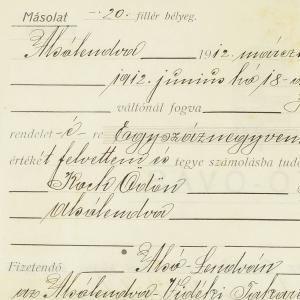 Másolat -.20. fillér bélyeg.
Alsólendva 1912. márcz
1912. junius hó 18-
váltónál fogva
rendelet-é-re Egyszáznegyven
értékét felvettem és tegye számolásba tud
Koch Ödön
Alsólendva
Alsó-Lendván
Fizetendő
az Alsólendva-Vidéki Takar